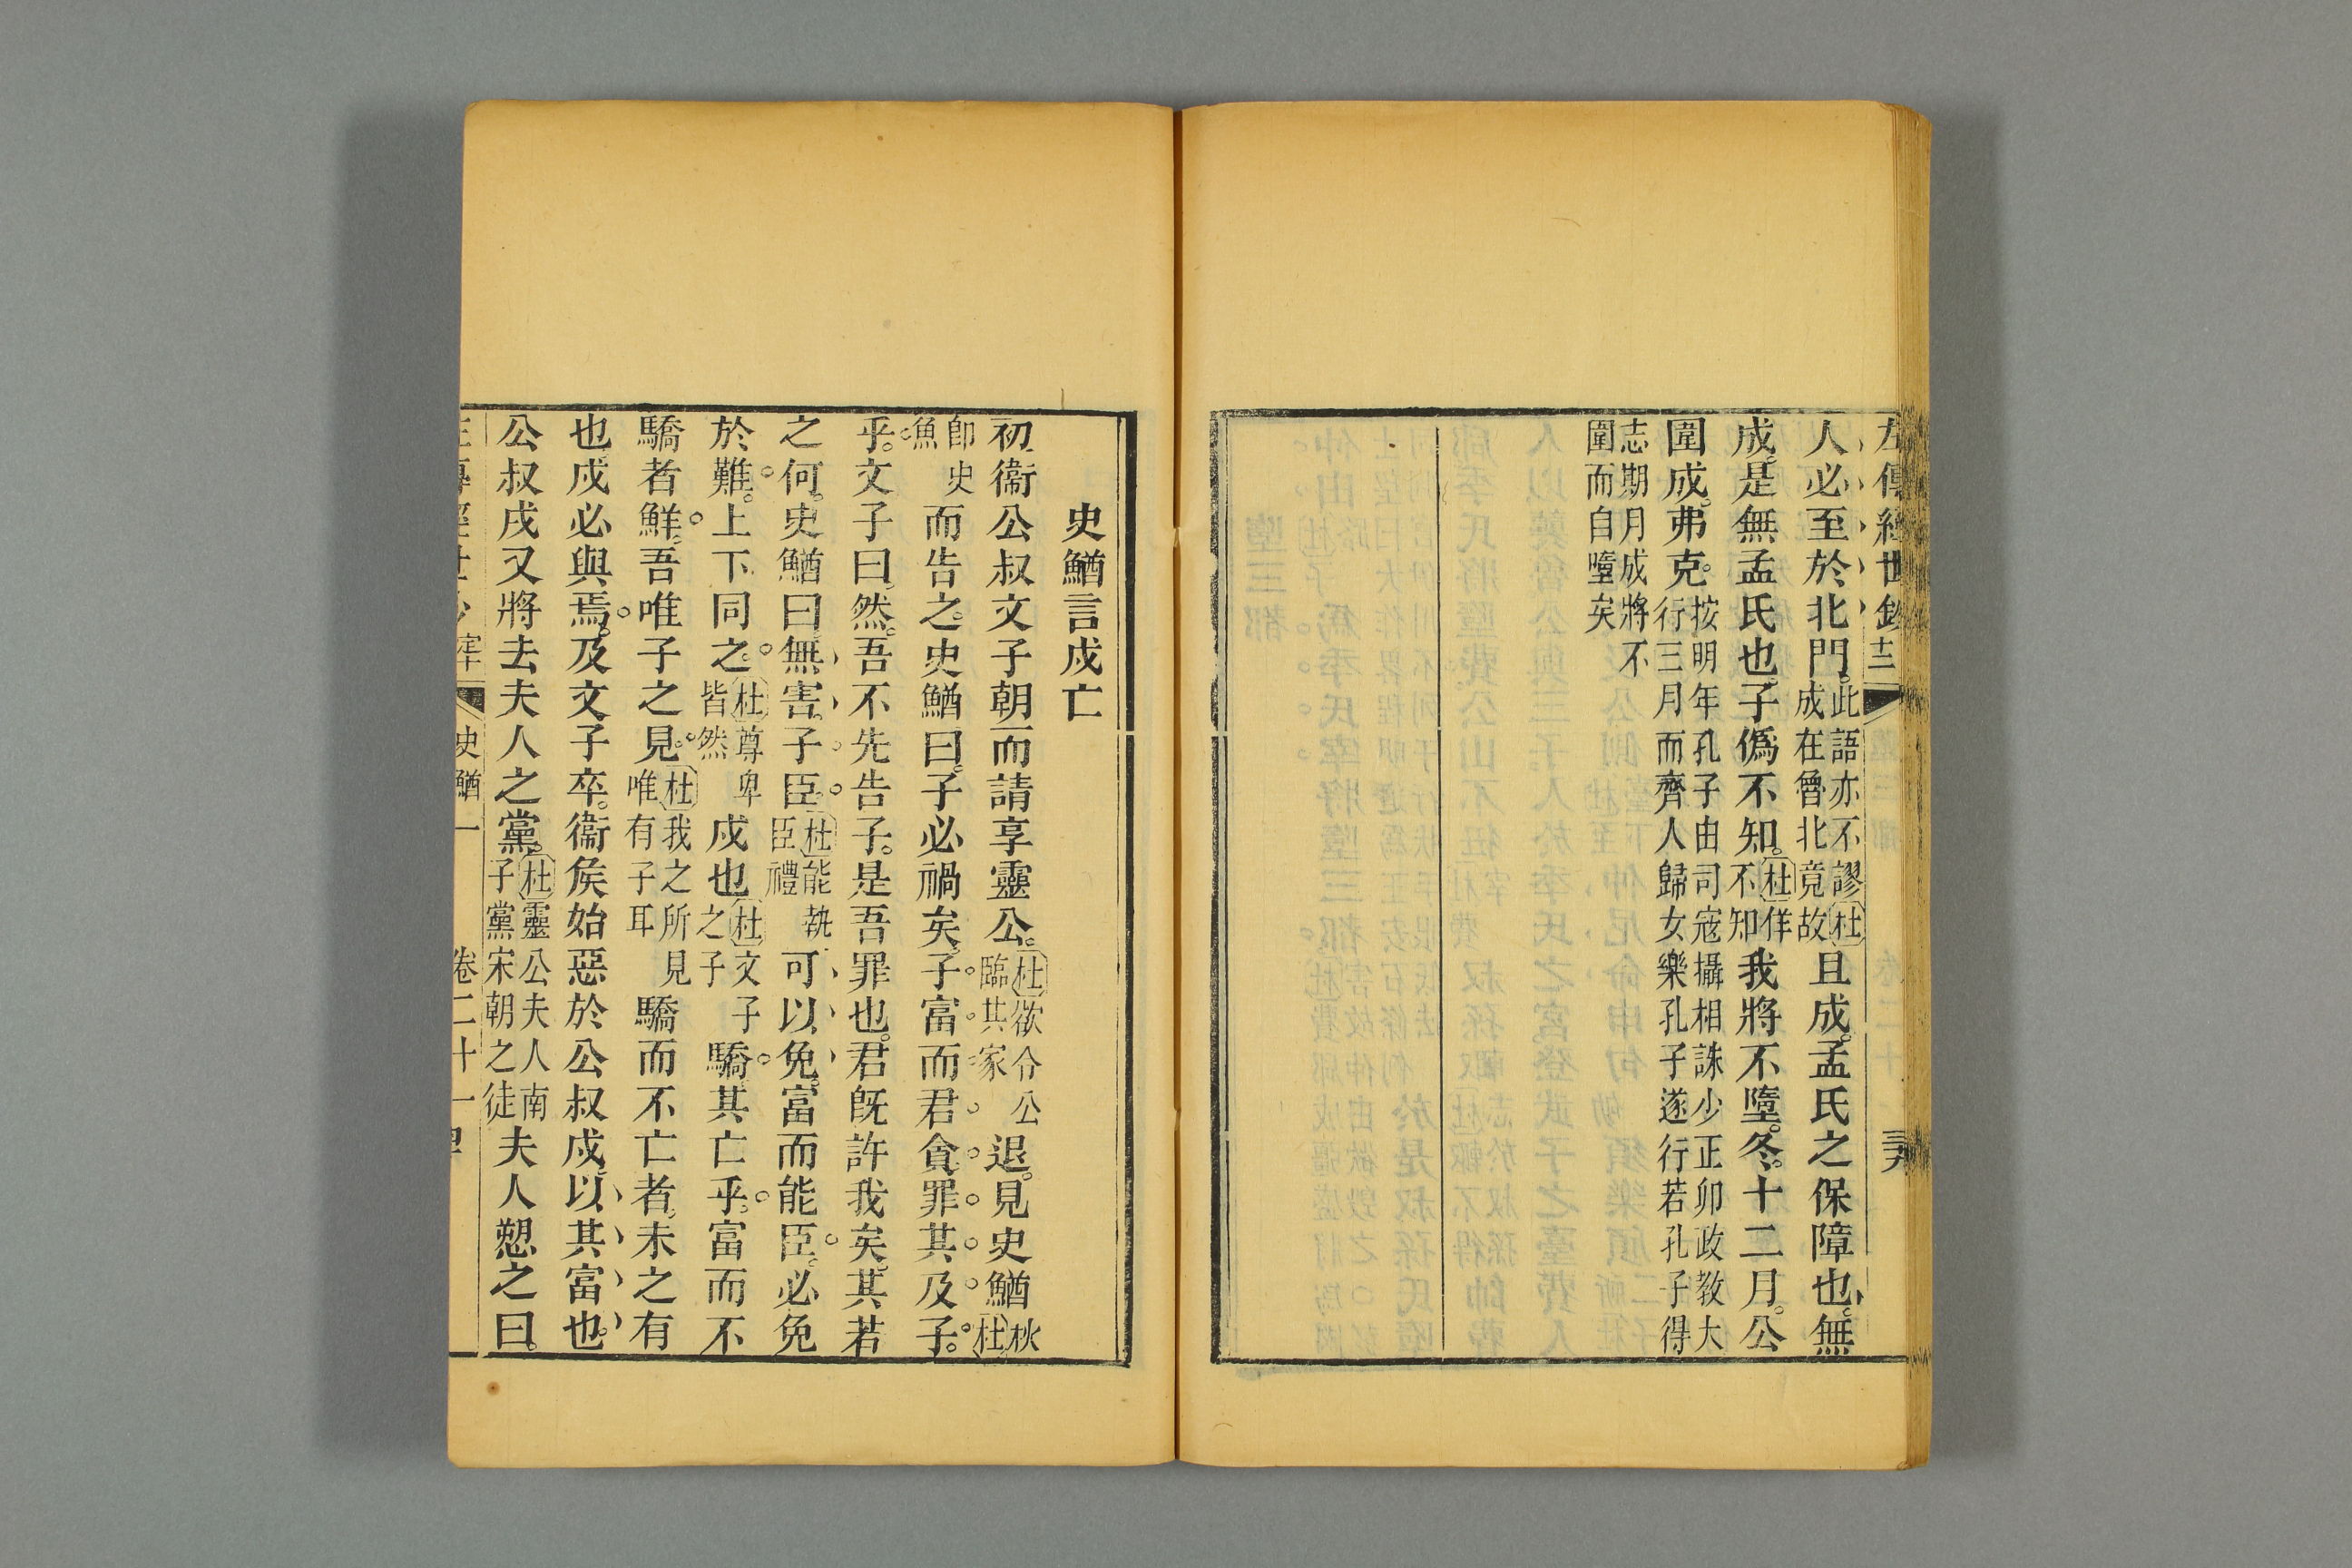 左傳經世鈔 三
人必至於北門此語亦不謬杜成在魯北竟故且成孟氏之保障也無
成是無孟氏也子僞不知杜佯不知我將不墮冬十二月公
圍成弗克按明年孔子由司寇攝相誅少正卯政教大行三月而齊人歸女樂孔子遂行若孔子得
志期月成將不圍而自墮矣
史鰌言戍亡
初衞公叔文子朝而請享靈公杜欲令公臨其家退見史鰌杜
卽史魚而告之史鰌曰子必禍矣子富而君貪罪其及子
乎文子曰然吾不先告子是吾罪也君旣許我矣其若
之何史鰌曰無害子臣杜能執臣禮可以免富而能臣必免
於難上下同之杜尊卑皆然戍也杜文子之子驕其亡乎富而不
驕者鮮吾唯子之見杜我之所見唯有子耳驕而不亡者未之有
也戍必與焉及文子卒衞侯始惡於公叔戍以其富也
公叔戍又將去夫人之黨杜靈公夫人南子黨宋朝之徒夫人愬之曰
史鰌 一 卷二十一